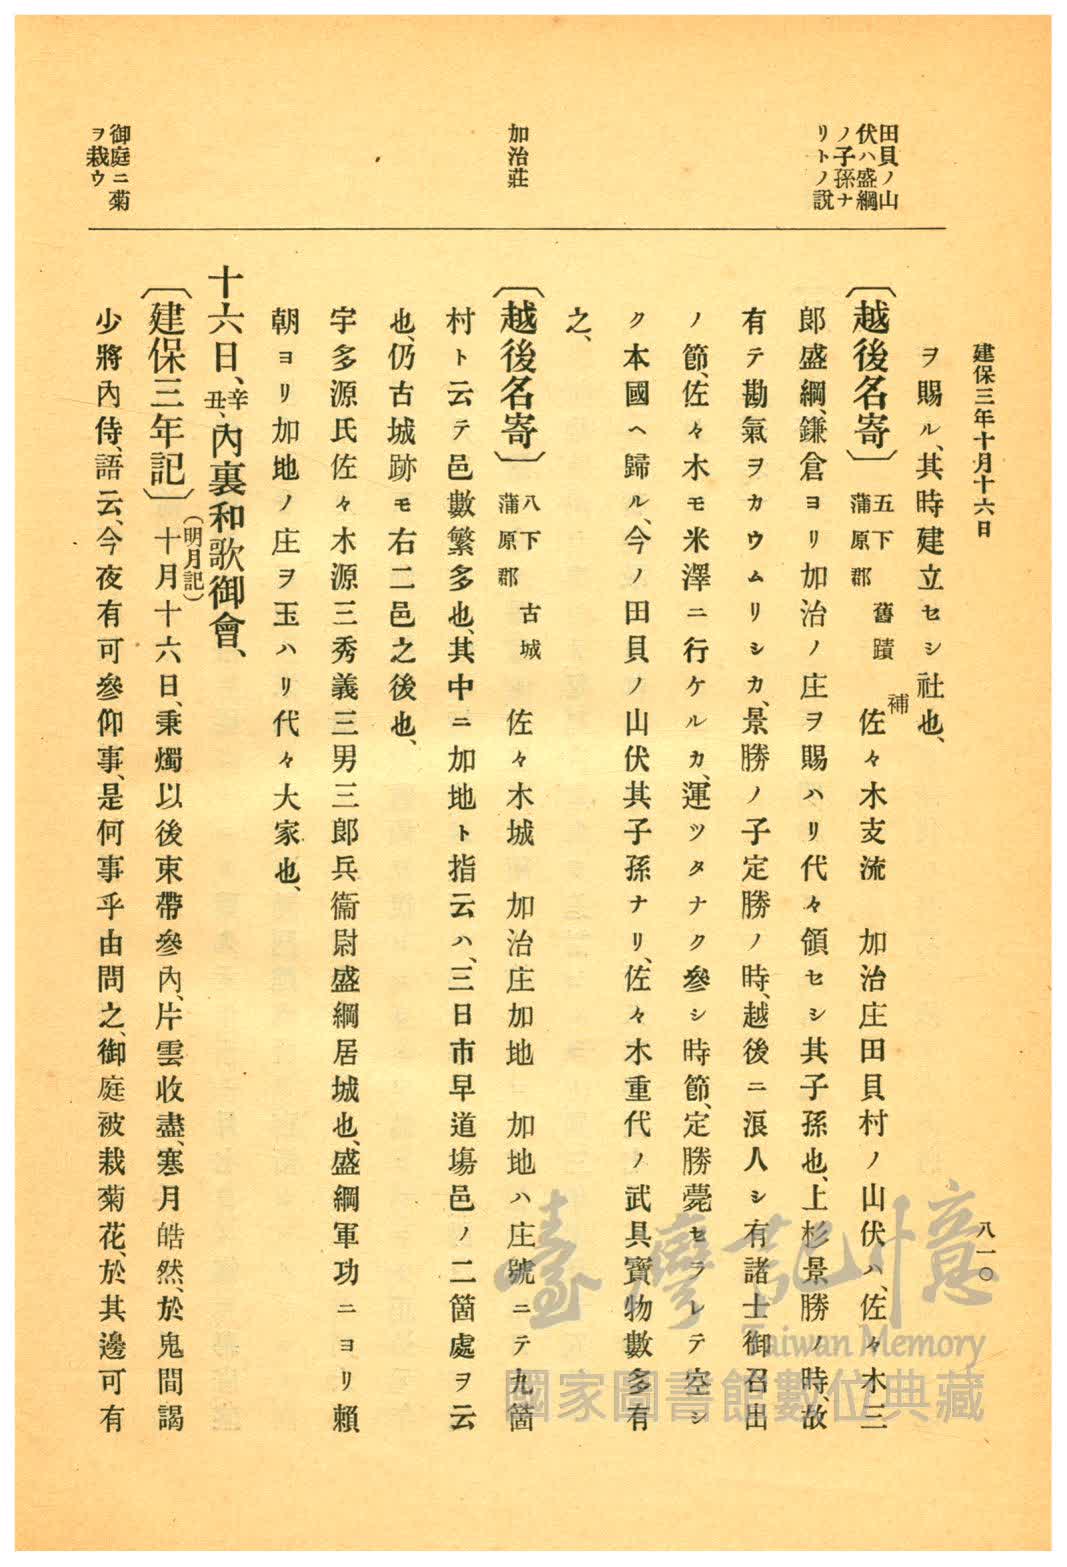 建保三年十月十六日
八一〇
田貝ノ山
伏ハ盛綱
ノ子孫ナ
リトノ説
加治莊
御庭ニ菊
ヲ栽ウ
ヲ賜ル、其時建立セシ社也、
〔越後名寄〕 五下蒲原郡 舊蹟補 佐々木支流 加治庄田貝村ノ山伏ハ、佐々木三
郎盛綱、鎌倉ヨリ加治ノ庄ヲ賜ハリ代々領セシ其子孫也、上杉景勝ノ時、故
有テ勘氣ヲカウムリシカ、景勝ノ子定勝ノ時、越後ニ浪人シ有諸士御召出
ノ節、佐々木モ米澤ニ行ケルカ、運ツタナク參シ時節、定勝薨セラレテ空シ
ク本國ヘ歸ル、今ノ田貝ノ山伏其子孫ナリ、佐々木重代ノ武具寶物數多有
之、
〔越後名寄〕 八下蒲原郡 古城 佐々木城 加治庄加地 加地ハ庄號ニテ九箇
村ト云テ邑數繁多也、其中ニ加地ト指云ハ、三日市早道場邑ノ二箇處ヲ云
也、仍古城跡モ右二邑之後也、
宇多源氏佐々木源三秀義三男三郎兵衞尉盛綱居城也、盛綱軍功ニヨリ賴
朝ヨリ加地ノ庄ヲ玉ハリ代々大家也、
十六日、辛丑、內裏和歌御會、
〔建保三年記〕 (明月記) 十月十六日、秉燭以後束帶參內、片雲收盡、寒月皓然、於鬼間謁
少將內侍、語云、今夜有可參仰事、是何事乎由問之、御庭被栽菊花、於其邊可有
臺灣記憶
Taiwan Memory
國家圖書館數位典藏